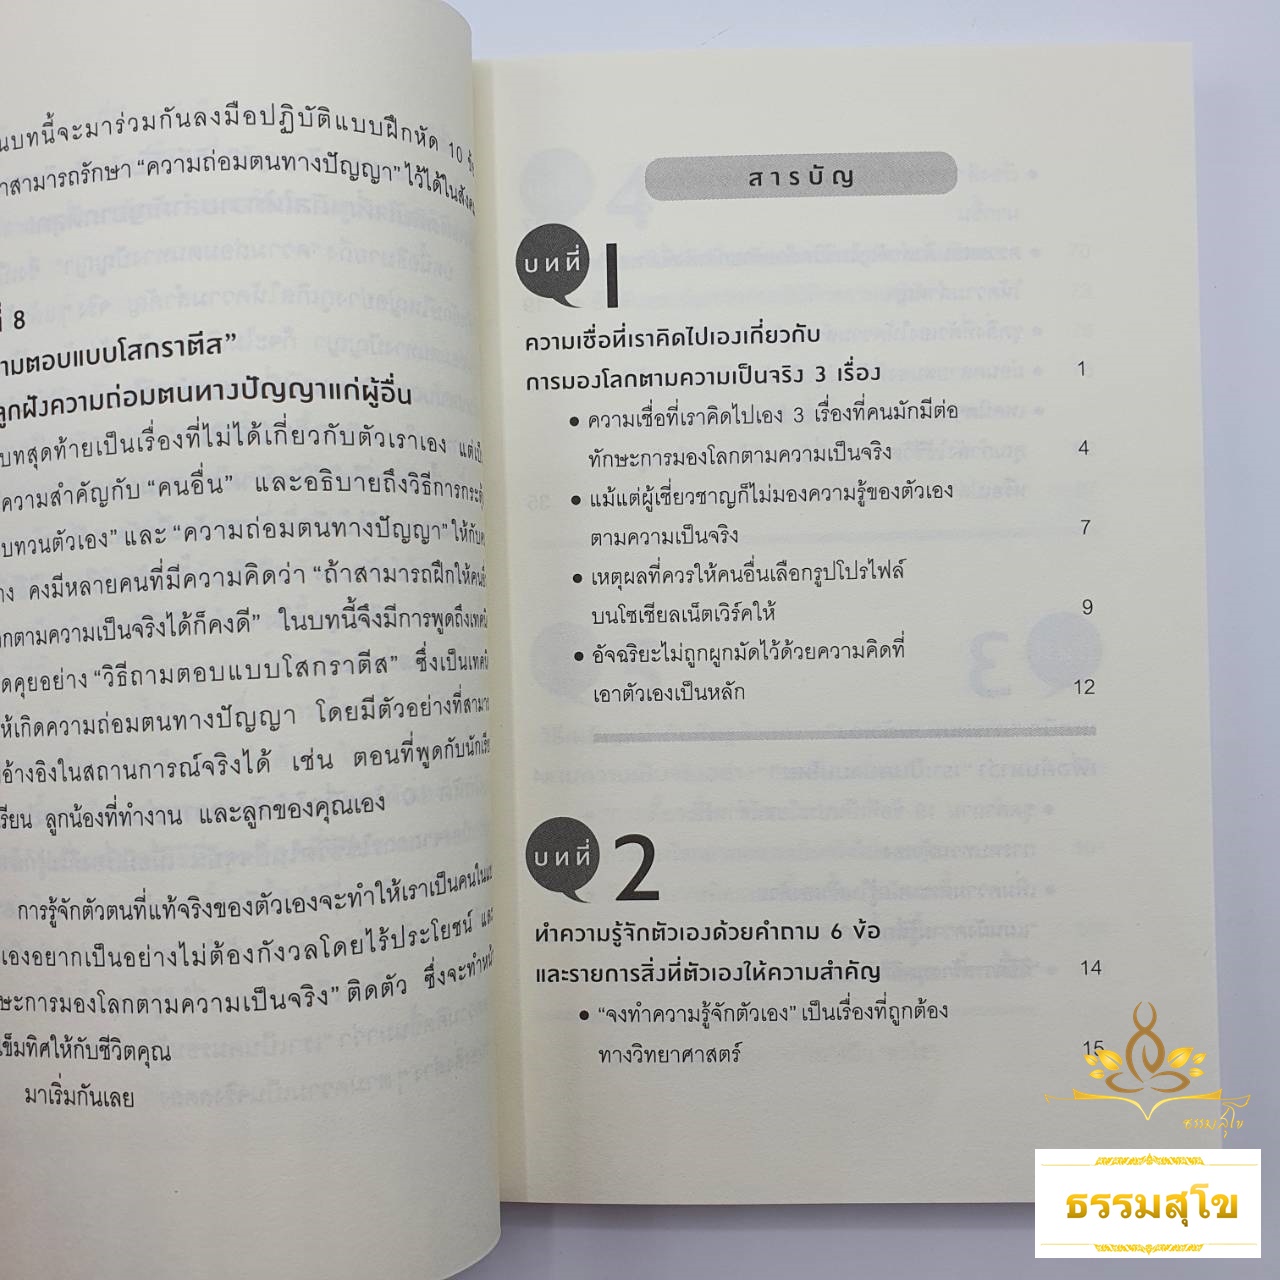 นบทนี้จะมาร่วมกันลงมือปฏิบัติแบบฝึกหัด 10
าสามารถรักษา “ความถ่อมตนทางปัญญา” ไว้ได้ในสังคม
ที่ 8
ามตอบแบบโสกราตีส”
ลูกฝังความถ่อมตนทางปัญญาแก่ผู้อื่น
บทสุดท้ายเป็นเรื่องที่ไม่ได้เกี่ยวกับตัวเราเอง แต่เป็
ความสำคัญกับ “คนอื่น” และอธิบายถึงวิธีการกระตุ้
บทวนตัวเอง” และ “ความถ่อมตนทางปัญญา” ให้กับค
าง คงมีหลายคนที่มีความคิดว่า “ถ้าสามารถฝึกให้คน
กตามความเป็นจริงได้ก็คงดี” ในบทนี้จึงมีการพูดถึงเทคนิ
ดคุยอย่าง “วิธีถามตอบแบบโสกราตีส” ซึ่งเป็นเทคนิ
ห้เกิดความถ่อมตนทางปัญญา โดยมีตัวอย่างที่สามาร
อ้างอิงในสถานการณ์จริงได้ เช่น ตอนที่พูดกับนักเรี
รียน ลูกน้องที่ทำงาน และลูกของคุณเอง
การรู้จักตัวตนที่แท้จริงของตัวเองจะทำให้เราเป็นคนในแบ
เองอยากเป็นอย่างไม่ต้องกังวลโดยไร้ประโยชน์ และ
ษะการมองโลกตามความเป็นจริง” ติดตัว ซึ่งจะทำหน้
ข็มทิศให้กับชีวิตคุณ
มาเริ่มกันเลย
สารบัญ
บทที่ 1
ความเชื่อที่เราคิดไปเองเกี่ยวกับ
การมองโลกตามความเป็นจริง 3 เรื่อง 1
• ความเชื่อที่เราคิดไปเอง 3 เรื่องที่คนมักมีต่อ
ทักษะการมองโลกตามความเป็นจริง 4
• แม้แต่ผู้เชี่ยวชาญก็ไม่มองความรู้ของตัวเอง
ตามความเป็นจริง 7
• เหตุผลที่ควรให้คนอื่นเลือกรูปโปรไฟล์
บนโซเชียลเน็ตเวิร์คให้ 9
• อัจฉริยะไม่ถูกผูกมัดไว้ด้วยความคิดที่
เอาตัวเองเป็นหลัก 12
บทที่ 2
ทำความรู้จักตัวเองด้วยคำถาม 6 ข้อ
และรายการสิ่งที่ตัวเองให้ความสำคัญ 14
• “จงทำความรู้จักตัวเอง” เป็นเรื่องที่ถูกต้อง
ทางวิทยาศาสตร์ 15
ธรรมสุโข
ธรรมสุโข